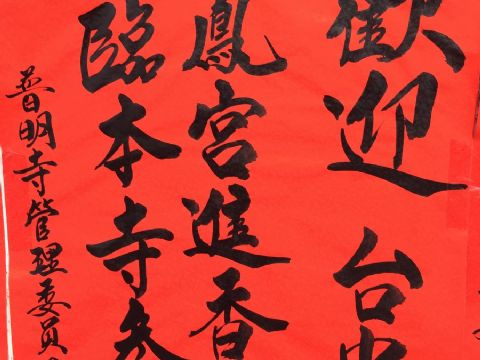 歡迎台中
鳳宮進香
臨本寺參
普明寺管理委員